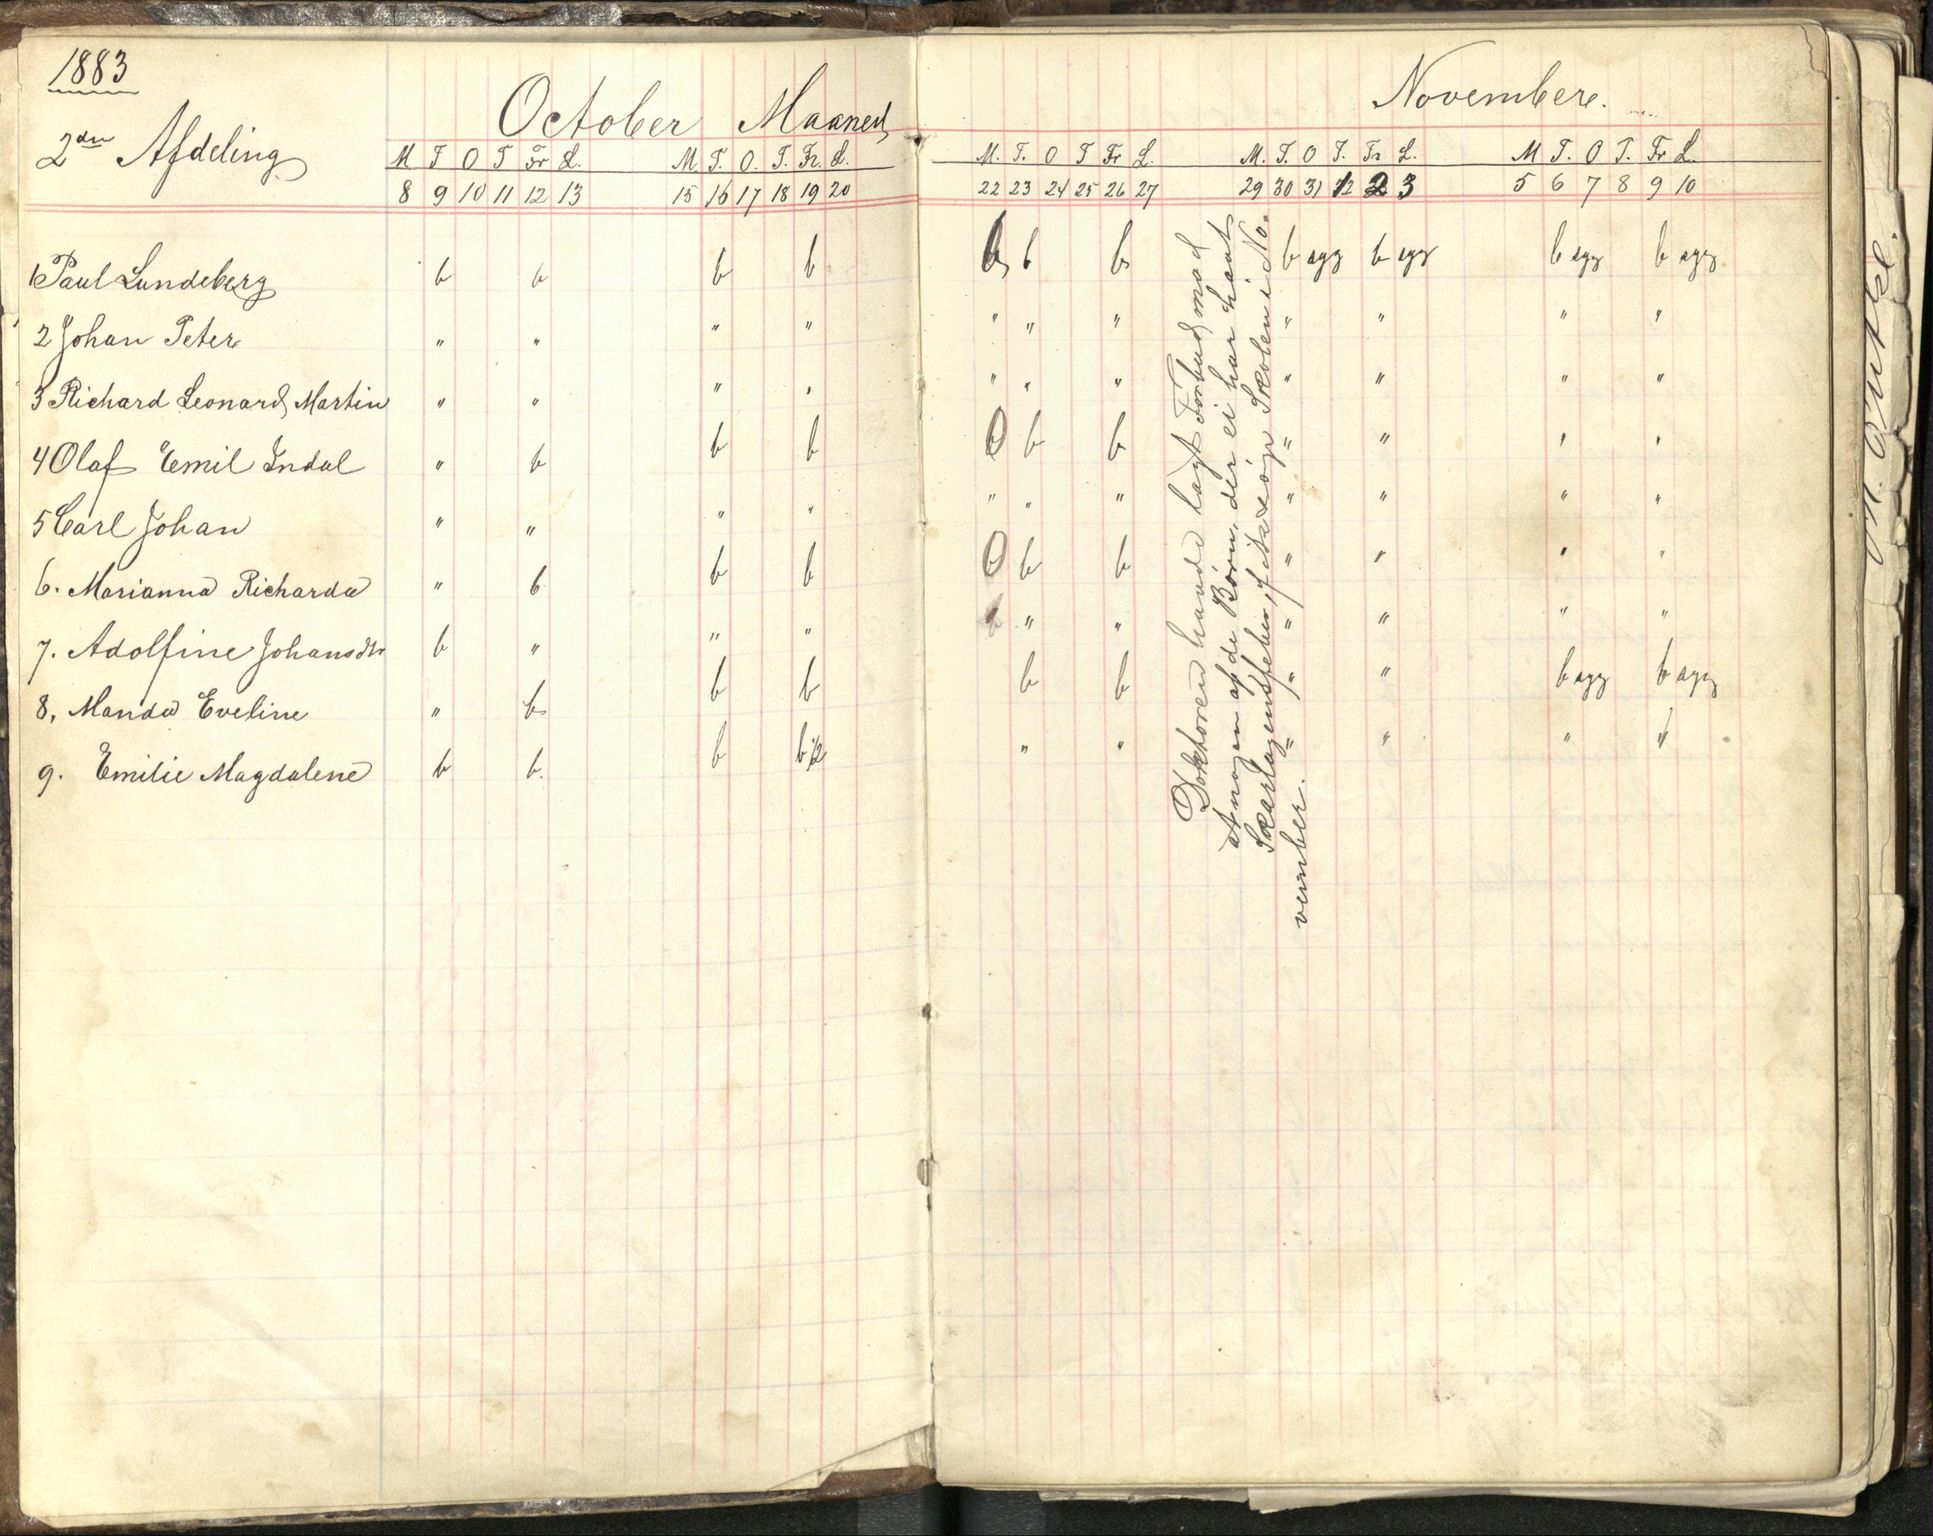 1883
2den Afdeling
October Maaned
M T O T Fr L. M. T. O. T. Fr. L.
8 9 10 11 12 13 15 16 17 18 19 20
1 Paul Lundeberg b b b b
2 Johan Peter " " " "
3 Richard Leonard Martin " " " "
4 Olaf Emil Indal " b b b
5 Carl Johan " " " "
6. Marianna Richarda " b b b
7. Adolfine Johansdtr b " " "
8, Manda Eveline " b b b
9. Emilie Magdalene b b. b b 1/2
Novembere.
M. T. O T Fr L. M. T. O T. Fr L. M T. O T. Fr L.
22 23 24 25 26 27 29 30 31 1 2 3 5 6 7 8 9 10
b b b b syg b syg b syg b syg
" " " " " " "
" " " " " " "
b b " " " "
" " " " " " "
b b " " " "
" " " " " "
b b " " b syg b syg
" " " " "
Doktoren havde lagt Forbud mod
at nogen af de Børn, der ei har havt
Skarlagensfeber, f
søge Skolen i No-
vember.